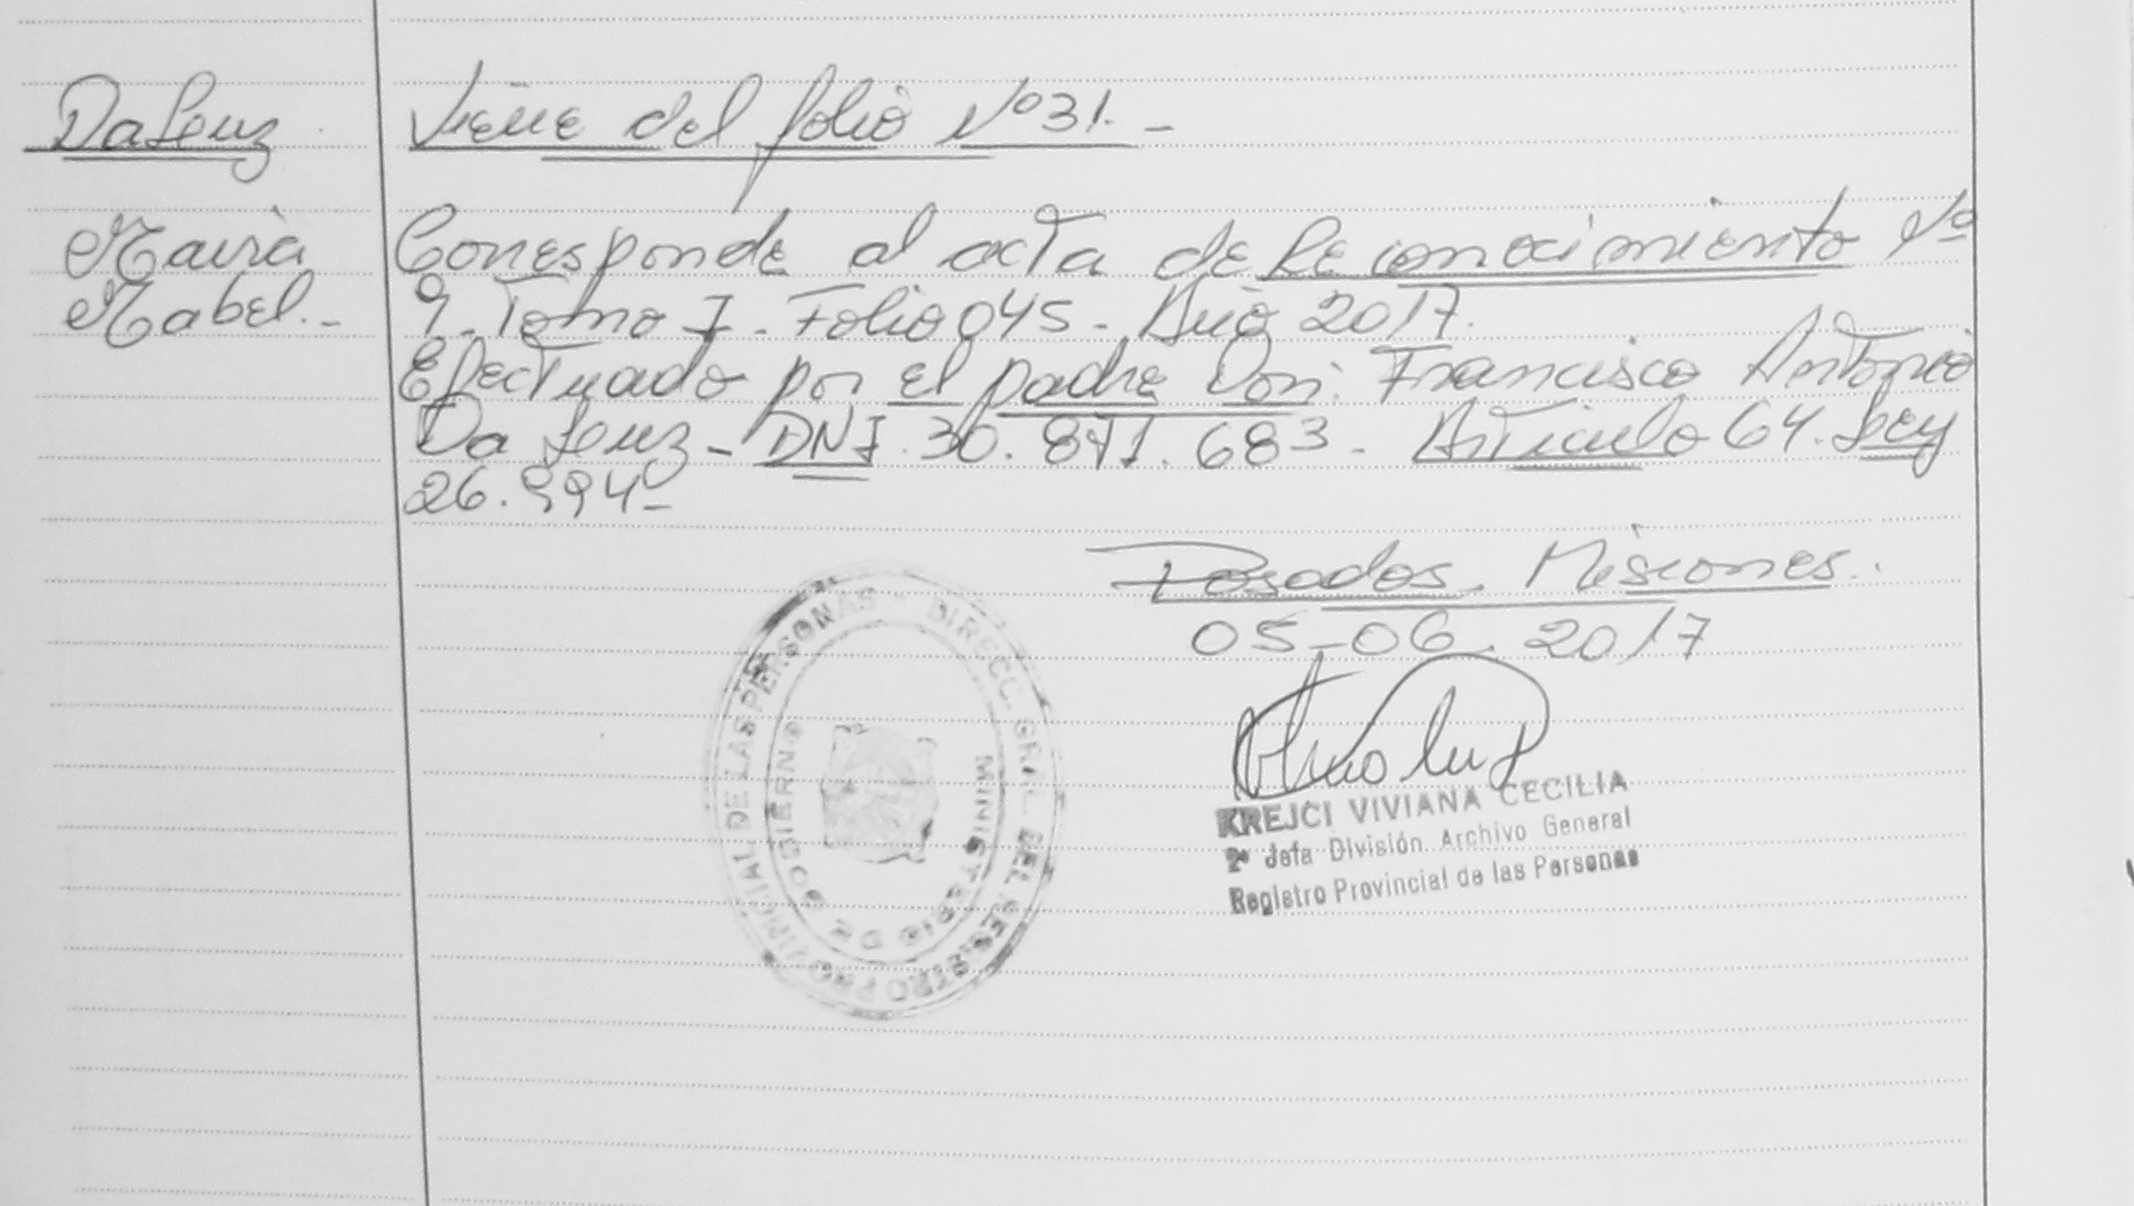 Da Luz
Viene del folio Nº 31.-
Maira
Mabel.-
Corresponde al acta de Reconocimiento Nº
9. Tomo I. Folio 045. Año 2017.
Efectuado por el padre Don: Francisco Antonio
Da Luz - DNI. 30.871.683. Artículo 64. Ley
26.994-
Posadas. Misiones.
05-06.2017
KREJCI VIVIANA CECILIA
2ª Jefa División Archivo General
Registro Provincial de las Personas
DIRECC. GRAL. DEL REGISTRO PROVINCIAL DE LAS PERSONAS -
MINISTERIO DE GOBIERNO